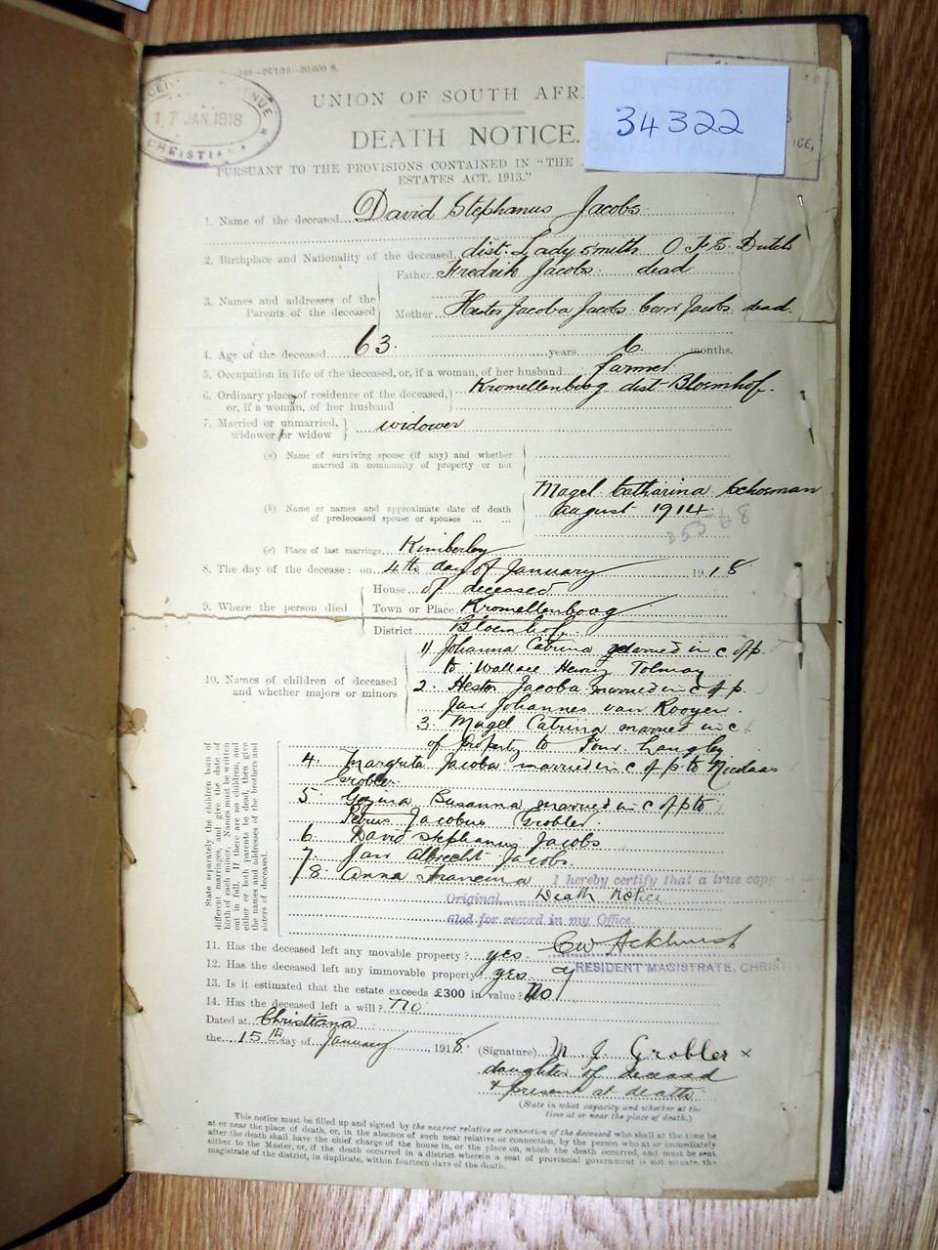 —26/1/16—20,000 S.
17 JAN 1918
UNION OF SOUTH AFRI
34322
DEATH NOTICE.
ICE,
PURSUANT TO THE PROVISIONS CONTAINED IN "THE
ESTATES ACT, 1913."
1. Name of the deceased David Stephanus Jacobs
2. Birthplace and Nationality of the deceased dist. Lady Smith O.F.S. Dutch
3. Names and addresses of the Parents of the deceased
Father Fredrik Jacobs dead
Mother Hester Jacoba Jacobs born Jacobs dead.
4. Age of the deceased 63. years 6 months.
5. Occupation in life of the deceased, or, if a woman, of her husband farmer
6. Ordinary place of residence of the deceased, or, if a woman, of her husband Kromellenboog dist-Bloemhof.
7. Married or unmarried, widower or widow widower
(a) Name of surviving spouse (if any) and whether
married in community of property or not
(b) Name or names and approximate date of death
of predeceased spouse or spouses ... ...
Magel Catharina Schoeman
August 1914
(c) Place of last marriage Kimberley
8. The day of the decease: on 4th day of January 1918
9. Where the person died
House of deceased
Town or Place Kromellenboog
District Bloemhof.
10. Names of children of deceased
and whether majors or minors
1) Johanna Catrina married in c of p.
to Wallace Henry Tolmay
2. Hester Jacoba married in c of p
Jan Johannes van Rooyen.
3. Magel Catrina married in c
of Property to Langley
4. Margreta Jacoba married in c of p to Nicolaas
Grobler
5 Susanna married in c of p to
Petrus Jacobus Grobler
6. David Stephanus Jacobs
7. Jan Albrecht Jacobs.
8. Anna Francina
State separately the children born of
different marriages, and give the date of
birth of each minor. Names must be written
out in full. If there are no children, and
either or both parents be dead, then give
the names and addresses of the brothers and
sisters of deceased.
I hereby certify that a true copy
Original Death Notice
filed for record in my Office.
RESIDENT MAGISTRATE, CHRIS
11. Has the deceased left any movable property? yes
12. Has the deceased left any immovable property yes
13. Is it estimated that the estate exceeds £300 in value? no
14. Has the deceased left a will? no
Dated at Christiana
the 15th day of January 1918
(Signature) M. J. Grobler x
daughter of deceased
+ present at death
(State in what capacity and whether at the
time at or near the place of death.)
This notice must be filled up and signed by the nearest relative or connection of the deceased who shall at the time be
at or near the place of death, or, in the absence of such near relative or connection, by the person who at or immediately
after the death shall have the chief charge of the house in, or the place on, which the death occurred, and must be sent
either to the Master, or, if the death occurred in a district wherein a seat of provincial government is not situate, the
magistrate of the district, in duplicate, within fourteen days of the death.